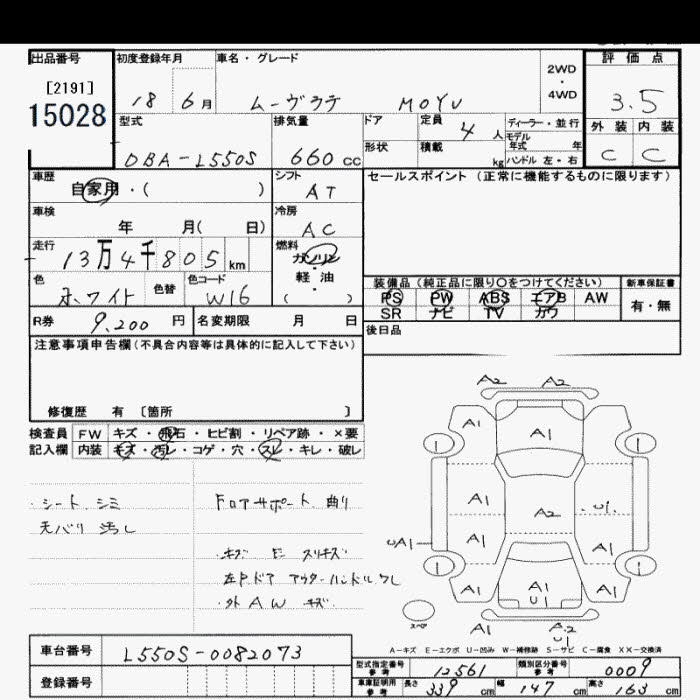 出品番号 初度登録年月 車名・グレード 評価点
[2191]
15028
18 6月 ムーヴラテ MOYU
2WD
・
4WD
3.5
型式 排気量 ドア 定員 4人 ディーラー・並行 外装 内装
モデル年式 年
DBA-L550S 660cc 形状 積載 kg ハンドル 左・右 C C
車歴 シフト セールスポイント (正常に機能するものに限ります)
自家用・( ) AT
車検 冷房
年 月( 日) AC
走行 燃料
13万4千805km ガソリン
軽・油
( )
色 色替 色コード
ホワイト W16
装備品 (純正品に限り○をつけてください) 新車保証書
PS PW ABS エアB AW 有・無
SR ナビ TV カワ
R券 9,200円 名変期限 月 日
後日品
注意事項申告欄 (不具合内容等は具体的に記入して下さい)
修復歴 有 〔箇所 〕
検査員 FW キズ・飛石・ヒビ割・リペア跡・×要
記入欄 内装 キズ・汚レ・コゲ・穴・スレ・キレ・破レ
・シート シミ
天バリ 汚レ
Fロアサポート 曲り
・キズ E スリキズ
左Pドア アウターハンドル ワレ
・外 AW キズ
A2 A2
A1 A1 A1
1 1
A1 A2 ・U1
UA1 A1
1 1
A1 A1 U1 A1
スペア A1 A2 U1
A-キズ E-エクボ U-凹み W-補修跡 S-サビ C-腐食 XX-交換済
車台番号 L550S-0082073
登録番号
型式指定番号 参考 12561 類別区分番号 参考 0009
車庫証明用 参考 長さ 339cm 幅 147cm 高さ 163cm